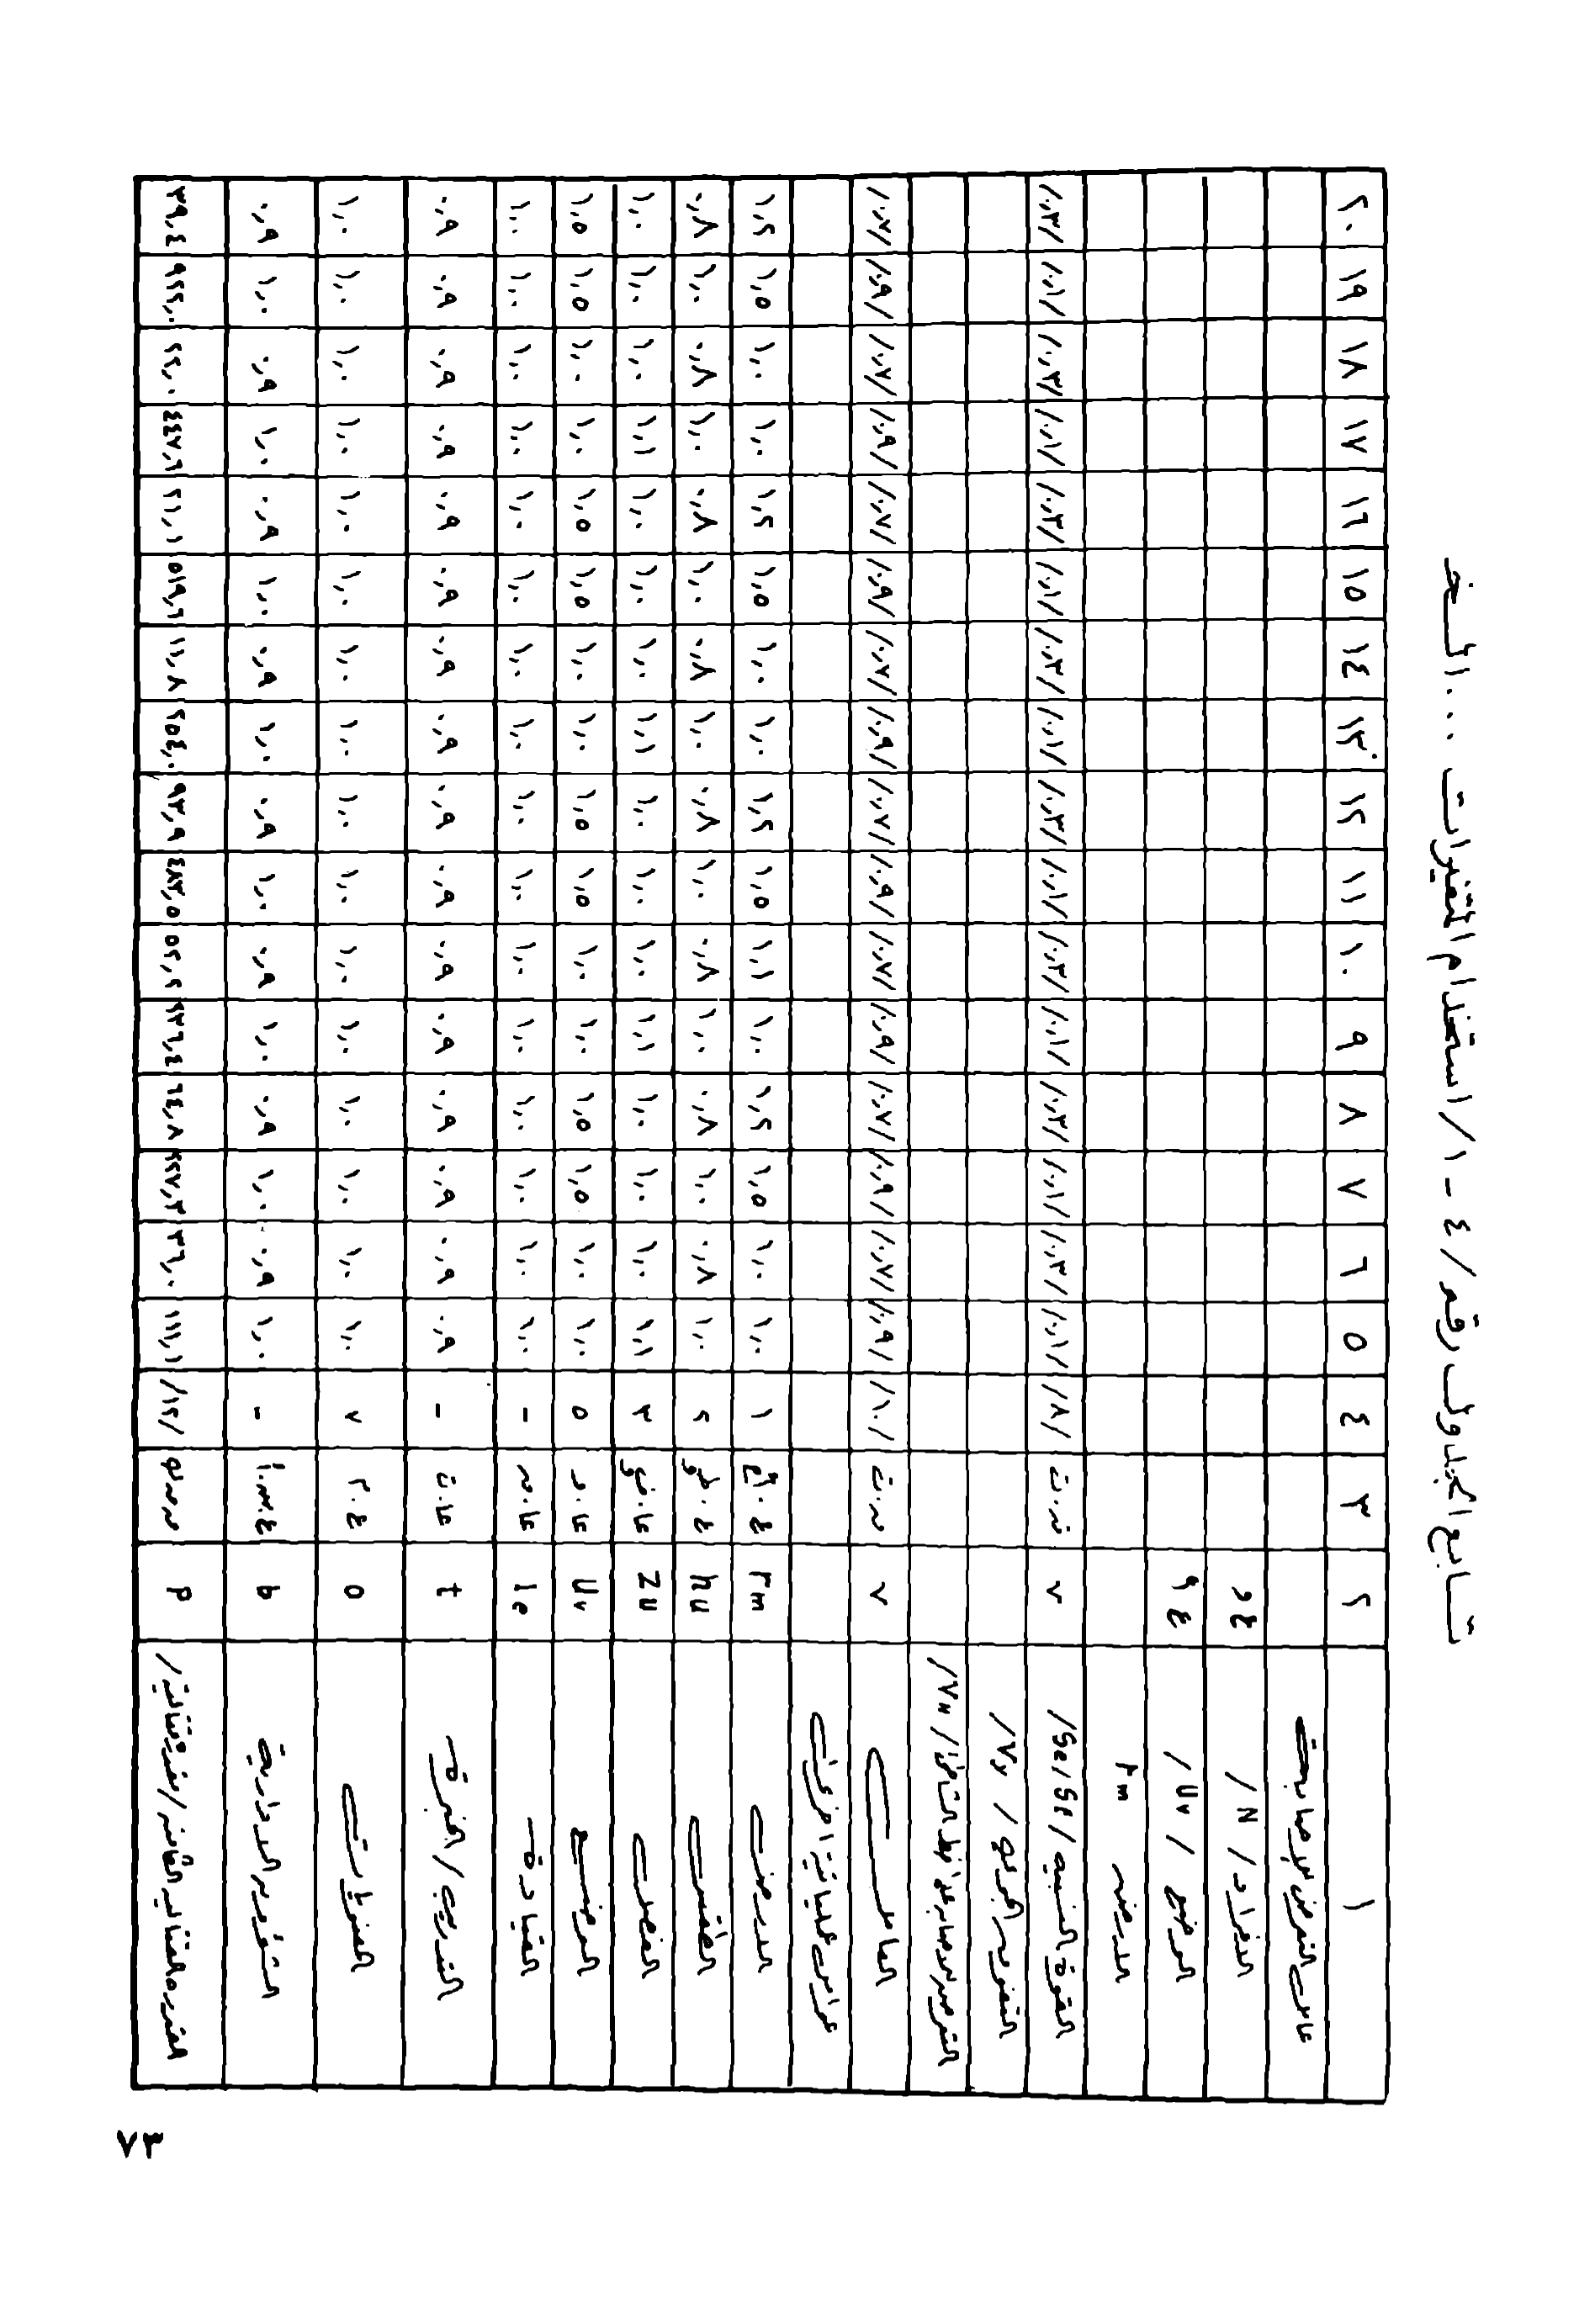 تابع الجدول رقم /٤ - ١/ استخدام المتغيرات ... الخ
١ ٢ ٣ ٤ ٥ ٦ ٧ ٨ ٩ ١٠ ١١ ١٢ ١٣ ١٤ ١٥ ١٦ ١٧ ١٨ ١٩ ٢٠
عامل التعرض للإصابة
الافراد / N /
الوضع / Uv /
الارض rm
القوة النسبية /Se/Se/ ٧ /٨/ /٠,١/ /٠,٣/ /٠,١/ /٠,٣/ /٠,١/ /٠,٣/ /٠,١/ /٠,٣/ /٠,١/ /٠,٣/ /٠,١/ /٠,٣/ /٠,١/ /٠,٣/ /٠,١/ /٠,٣/
التفوق الجوي / Vy/
عوامل عملياتية اخرى
العامل ٧ /١٠/ /٠,٩/ /٠,٧/ /٠,٩/ /٠,٧/ /٠,٩/ /٠,٧/ /٠,٩/ /٠,٧/ /٠,٩/ /٠,٧/ /٠,٩/ /٠,٧/ /٠,٩/ /٠,٧/ /٠,٩/ /٠,٧/
الارض rm ١ ١,٠ ١,٠ ١,٥ ١,٢ ١,٠ ١,١ ١,٥ ١,٢ ١,٠ ١,٠ ١,٥ ١,٢ ١,٠ ١,٠ ١,٥ ١,٢
الطقس hu ٢ ١,٠ ٠,٨ ١,٠ ٠,٨ ١,٠ ٠,٨ ١,٠ ٠,٨ ١,٠ ٠,٨ ١,٠ ٠,٨ ١,٠ ٠,٨ ١,٠ ٠,٨
الفصل Zu ٣ ١,١ ١,٠ ١,٠ ١,٠ ١,١ ١,٠ ١,٠ ١,٠ ١,١ ١,٠ ١,٠ ١,٠ ١,١ ١,٠ ١,٠ ١,٠
الوضع Uv عا.و ٥ ١,٠ ١,٠ ١,٥ ١,٥ ١,٠ ١,٠ ١,٥ ١,٥ ١,٠ ١,٠ ١,٥ ١,٥ ١,٠ ١,٠ ١,٥ ١,٥
القيادة le - ١,٠ ١,٠ ١,٠ ١,٠ ١,٠ ١,٠ ١,٠ ١,٠ ١,٠ ١,٠ ١,٠ ١,٠ ١,٠ ١,٠ ١,٠ ١,٠
التدريب / الخبرة t عا.ت - ٠,٩ ٠,٩ ٠,٩ ٠,٩ ٠,٩ ٠,٩ ٠,٩ ٠,٩ ٠,٩ ٠,٩ ٠,٩ ٠,٩ ٠,٩ ٠,٩ ٠,٩ ٠,٩
المعنويات o ع.م ٧ ١,٠ ١,٠ ١,٠ ١,٠ ١,٠ ١,٠ ١,٠ ١,٠ ١,٠ ١,٠ ١,٠ ١,٠ ١,٠ ١,٠ ١,٠ ١,٠
الشؤون الادارية b - ١,٠ ٠,٩ ١,٠ ٠,٩ ١,٠ ٠,٩ ١,٠ ٠,٩ ١,٠ ٠,٩ ١,٠ ٠,٩ ١,٠ ٠,٩ ١,٠ ٠,٩
القدرة القتالية P /١٢/ ١١١,١ ٣٦,٠ ٢٢٧,٣ ٦٤,٨ ٥٢,٢ ٤٨٣,٥ ٩٣,٩ ٢٥٤,٠ ١١,٨ ٥١٩,٦ ٢١,١ ٤٤٧,٩ ٢٢,٠ ٩٢٢,٠ ٣٩,٤
٧٣